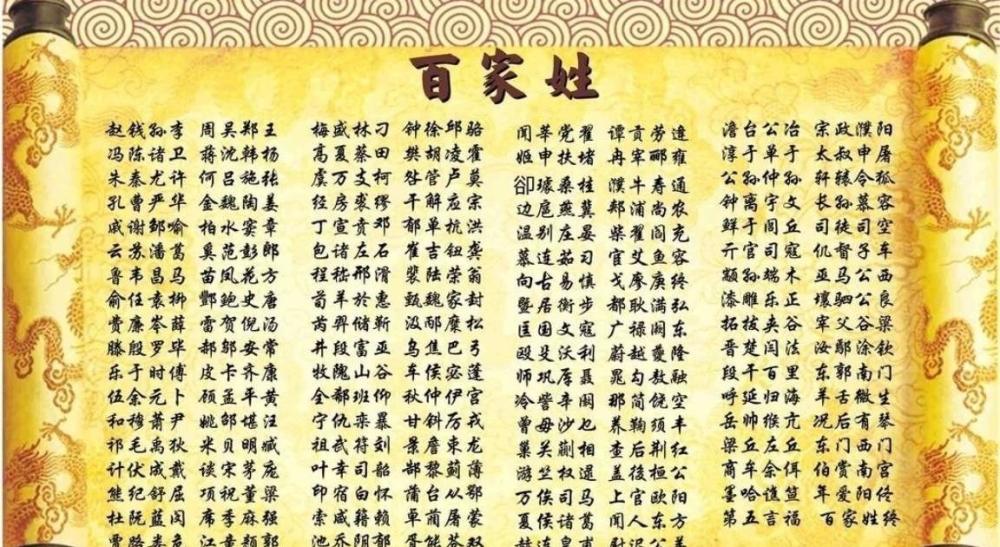 百家姓
赵钱孙李 周吴郑王
冯陈诸卫 蒋沈韩杨
朱秦尤许 何吕施张
孔曹严华 金魏陶姜
戚谢邹喻 柏水窦章
云苏潘葛 奚范彭郎
鲁韦昌马 苗凤花方
俞任袁柳 酆鲍史唐
费廉岑薛 雷贺倪汤
滕殷罗毕 郝邬安常
乐于时傅 皮卡齐康
伍余元卜 顾孟平黄
和穆萧尹 姚邹堪汪
祁毛禹狄 米贝明臧
计伏成戴 谈宋茅庞
熊纪舒屈 项祝董梁
杜阮蓝闵 席季麻强
贾路娄危 江童颜郭
梅盛林刁 钟徐邱骆
高夏蔡田 樊胡凌霍
虞万支柯 昝管卢莫
经房裘缪 干解应宗
丁宣贲邓 郁单杭洪
包诸左石 崔吉钮龚
程嵇邢滑 裴陆荣翁
荀羊於惠 甄魏家封
芮羿储靳 汲邴糜松
井段富巫 乌焦巴弓
牧隗山谷 车侯宓蓬
全郗班仰 秋仲伊宫
宁仇栾暴 甘斜厉戎
祖武符刘 景詹束龙
叶幸司韶 郜黎蓟薄
印宿白怀 蒲台从鄂
索咸籍赖 卓蔺屠蒙
池乔阴郁 胥能苍双
闻莘党翟 谭贡劳逄
姬申扶堵 冉宰郦雍
卻璩桑桂 濮牛寿通
边扈燕冀 郏浦尚农
温别庄晏 柴瞿阎充
慕连茹习 宦艾鱼容
向古易慎 戈廖庚终
暨居衡步 都耿满弘
匡国文寇 广禄阙东
殴殳沃利 蔚越夔隆
师巩厚聂 晁勾敖融
冷訾辛阚 那简饶空
曾毋沙也 养鞠须丰
巢关蒯相 查后荆红
游竺权逯 盖後桓公
万俟司马 上官欧阳
夏侯诸葛 闻人东方
赫连皇甫 尉迟公羊
澹台公冶 宗政濮阳
淳于单于 太叔申屠
公孙仲孙 轩辕令狐
钟离宇文 长孙慕容
鲜于闾丘 司徒司空
亓官司寇 仉督子车
颛孙端木 巫马公西
漆雕乐正 壤驷公良
拓拔夹谷 宰父谷梁
晋楚闫法 汝鄢涂钦
段干百里 东郭南门
呼延归海 羊舌微生
岳帅缑亢 况后有琴
梁丘左丘 东门西门
商牟佘佴 伯赏南宫
墨哈谯笪 年爱阳佟
第五言福 百家姓终